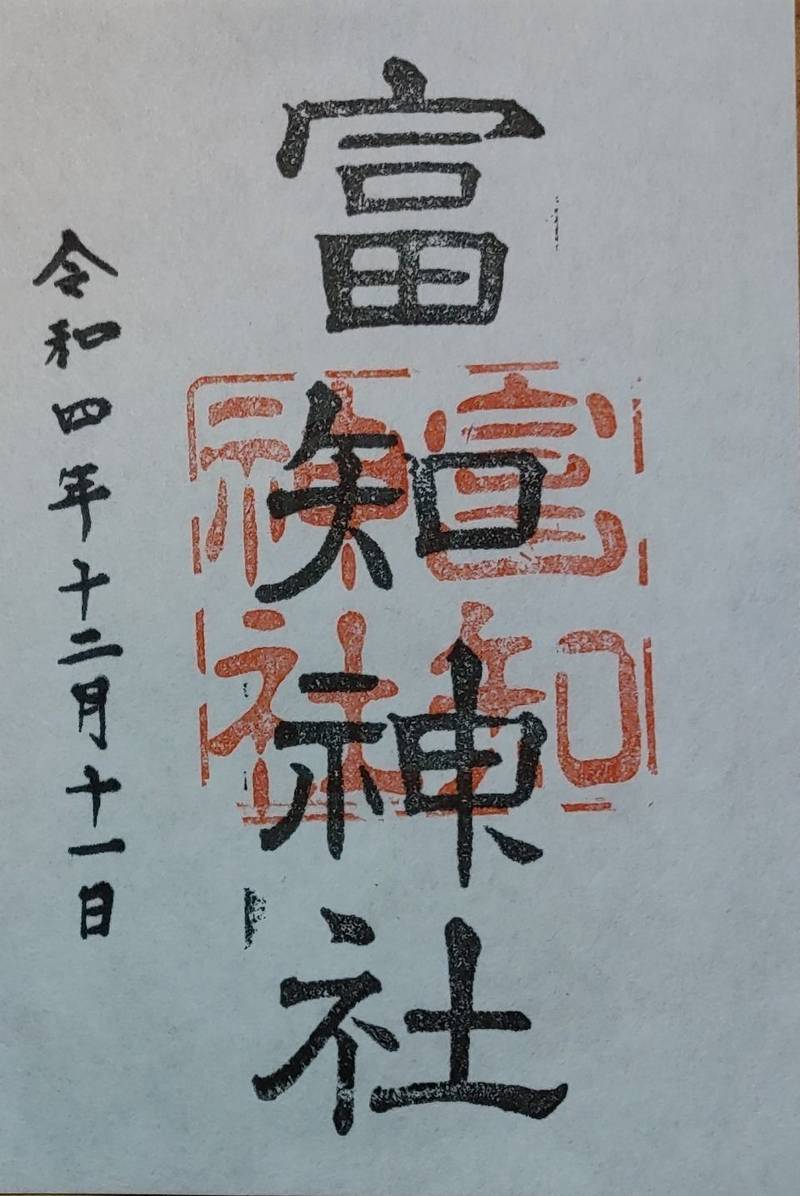 富知神社
富知神社
令和四年十二月十一日